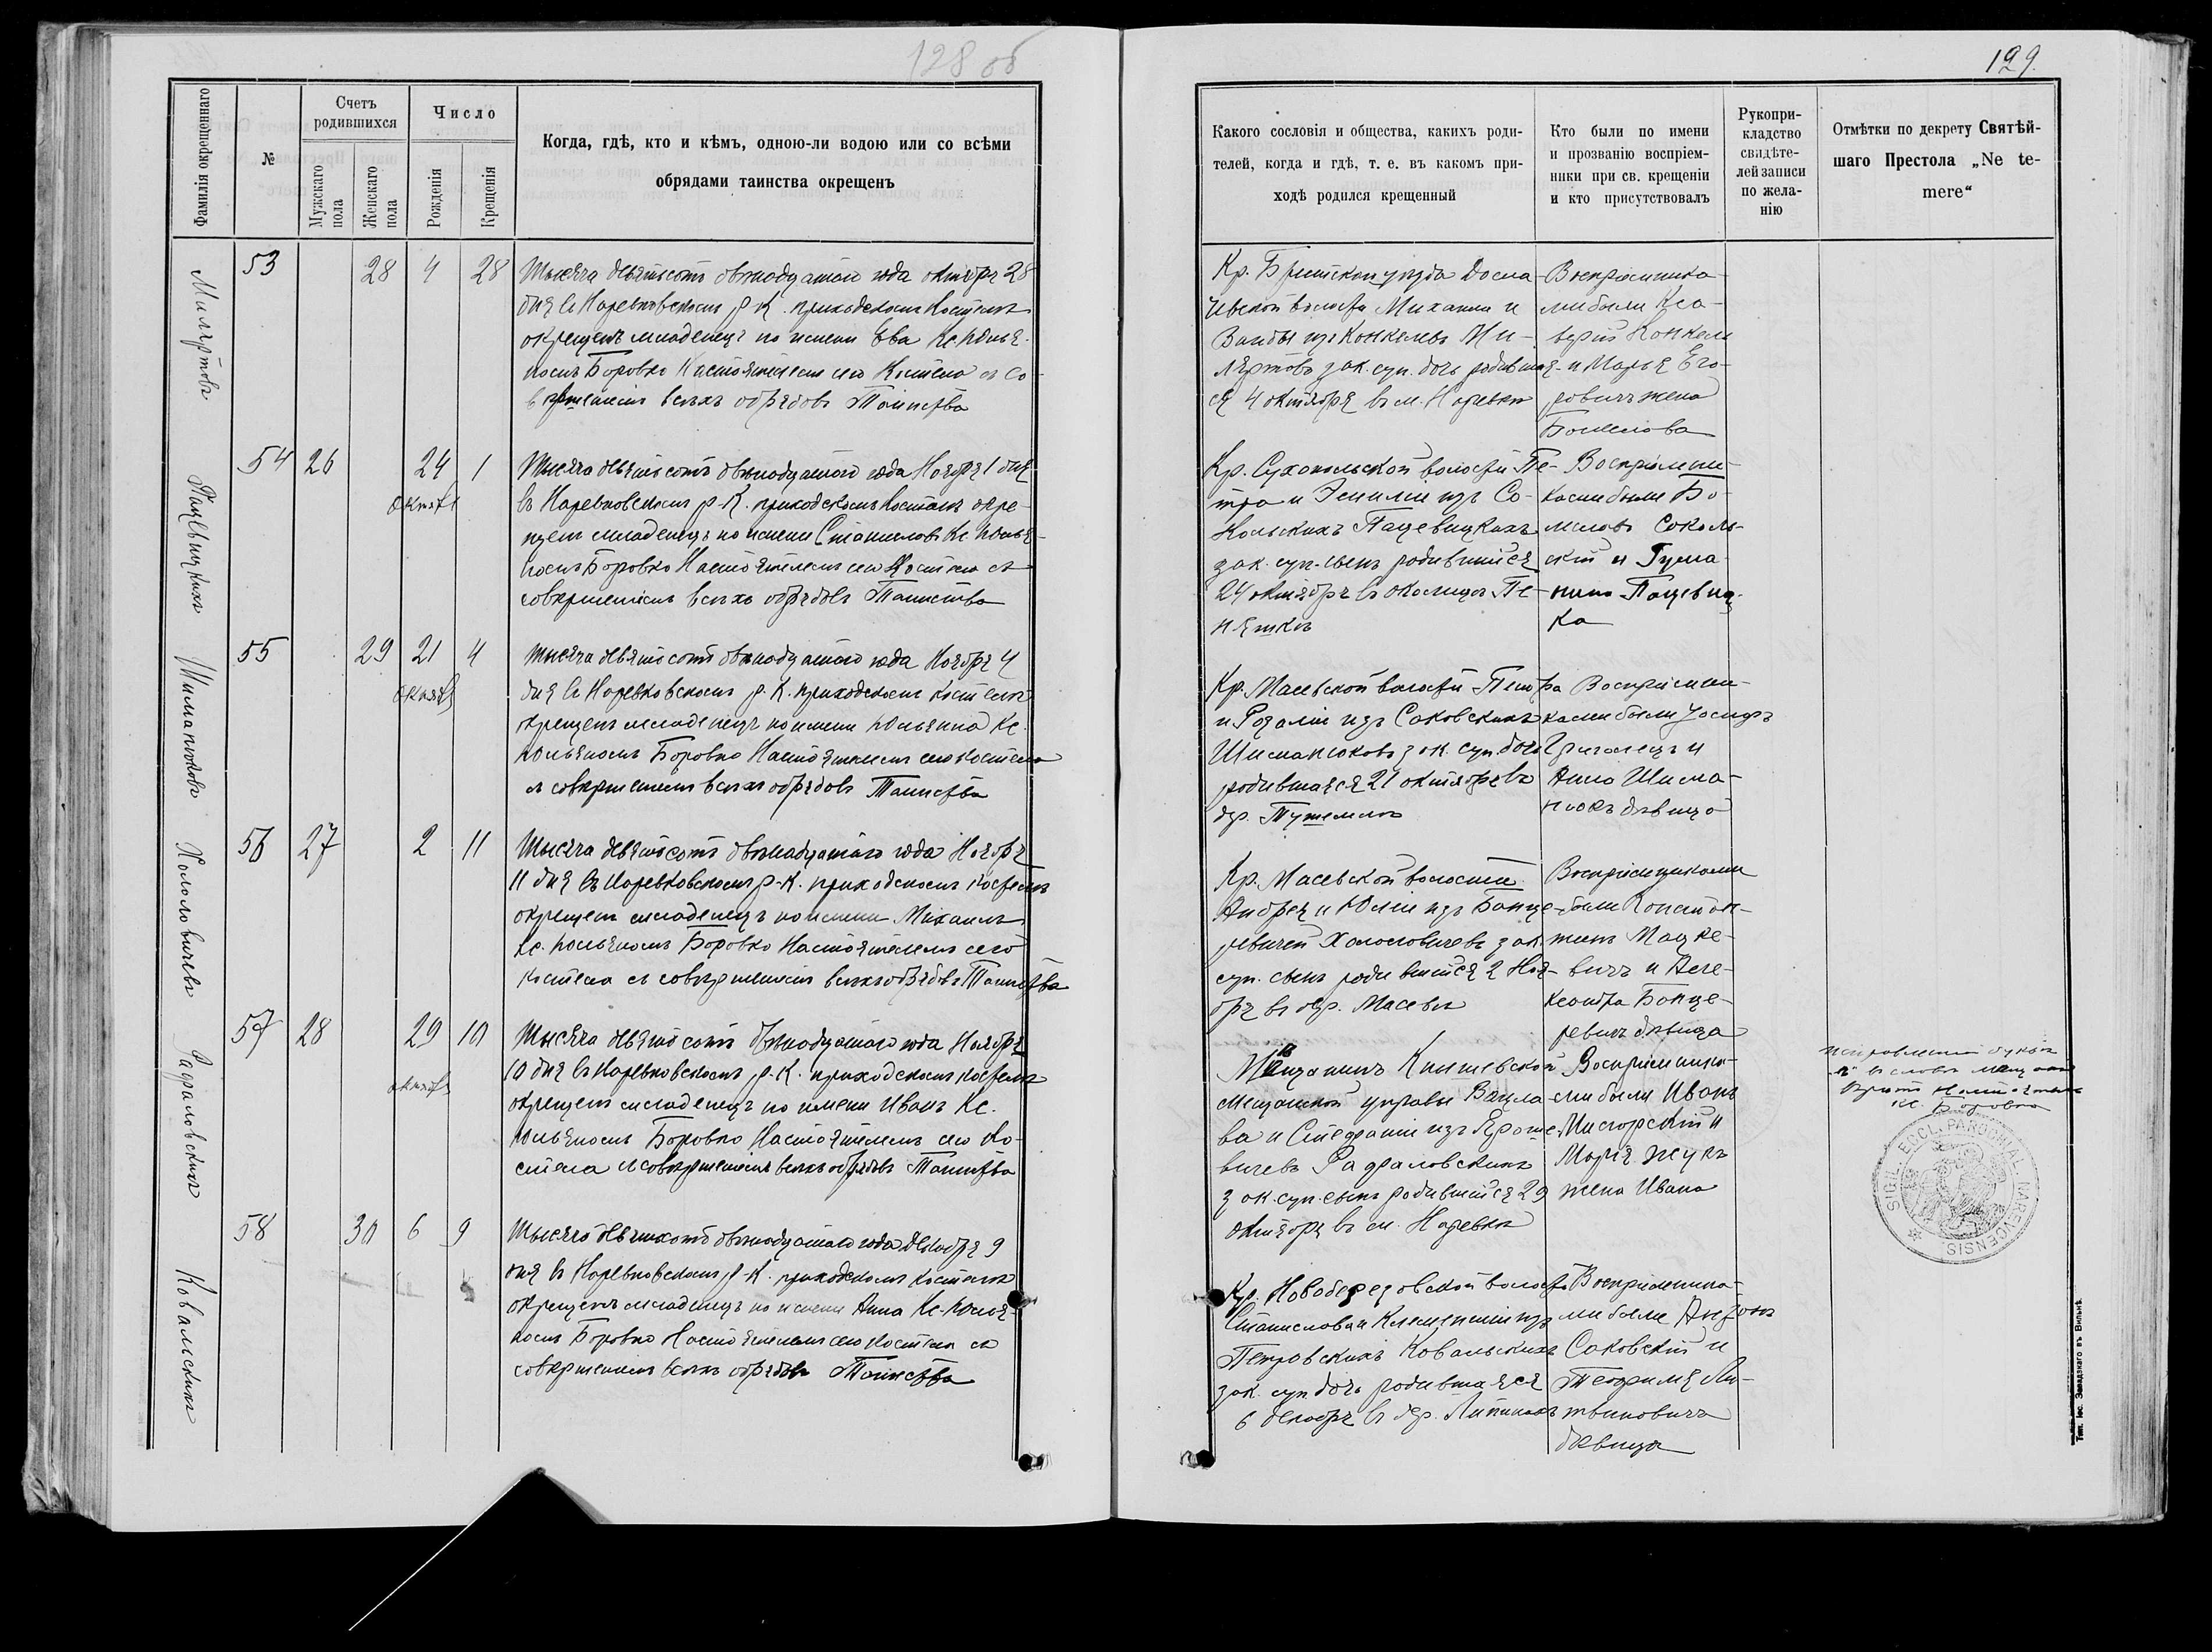 128 об
Фамилія окрещеннаго
№
Счетъ родившихся
Мужскаго пола
Женскаго пола
Число
Рожденія
Крещенія
Когда, гдѣ, кто и кѣмъ, одною-ли водою или со всѣми
обрядами таинства окрещенъ
53 28 4 28
Тысяча девятьсотъ двѣнадцатого года октября 28
дня въ Наревковскомъ Р-К. приходскомъ Костелѣ
окрещенъ младенецъ по имени Ева Кс. Юлья-
номъ Боровко Настоятелемъ сего Костела съ со-
вершеніемъ всѣхъ обрядовъ Таинства
Пацевицкихъ
54 26 24 1
октяб
Тысяча девятьсотъ двѣнадцатого года Ноября 1 дня
въ Наревковскомъ Р-К. приходскомъ Костелѣ окре-
щенъ младенецъ по имени Станиславъ Кс. Юлья-
номъ Боровко Настоятелемъ сего Костела съ
совершеніемъ всѣхъ обрядовъ Таинства
Шиманюковъ
55 29 21 4
октяб
Тысяча девятьсотъ двѣнадцатого года Ноября 4
дня въ Наревковскомъ Р-К. приходскомъ Костелѣ
окрещенъ младенецъ по имени Юльянна Кс.
Юльяномъ Боровко Настоятелемъ сего Костела
съ совершеніемъ всѣхъ обрядовъ Таинства
Хололовичевъ
56 27 2 11
Тысяча девятьсотъ двѣнадцатого года Ноября
11 дня въ Наревковскомъ Р-К. приходскомъ костелѣ
окрещенъ младенецъ по имени Михаилъ
Кс. Юльяномъ Боровко Настоятелемъ сего
Костела съ совершеніемъ всѣхъ обрядовъ Таинства
57 28 29 10
октяб
Тысяча девятьсотъ двѣнадцатого года Ноября
10 дня въ Наревковскомъ Р-К. приходскомъ костелѣ
окрещенъ младенецъ по имени Иванъ Кс.
Юльяномъ Боровко Настоятелемъ сего Ко-
стела съ совершеніемъ всѣхъ обрядовъ Таинства
Ковальскихъ
58 30 6 9
Тысяча девятьсотъ двѣнадцатого года Декабря 9
дня въ Наревковскомъ Р-К. приходскомъ Костелѣ
окрещенъ младенецъ по имени Анна Кс. Юлья-
номъ Боровко Настоятелемъ сего Костела съ
совершеніемъ всѣхъ обрядовъ Таинства
129.
Какого сословія и общества, какихъ роди-
телей, когда и гдѣ, т. е. въ какомъ при-
ходѣ родился крещенный
Кто были по имени
и прозванію воспріем-
ники при св. крещеніи
и кто присутствовалъ
Рукопри-
кладство
свидѣте-
лей записи
по жела-
нію
Отмѣтки по декрету Святѣй-
шаго Престола „Ne te-
mere“
Кр. Брестскаго уѣзда
волости Михаила и
Ванды изъ Конкелевъ Ми-
зак. суп. дочь родивша-
ся 4 октября въ м. Наревкѣ
Воспріемника-
ми были Кса-
верій Конкель
и Марья Его-
ровичъ жена
Болеслава
Кр. Сухопольской волости Пе-
тра и Эмиліи изъ Со-
кольскихъ Пацевицкихъ
зак. суп. сынъ родившійся
24 октября въ околицѣ
Воспріемни-
ками были Бо-
леславъ Соколь-
скій и
Пацевиц-
ка
Кр. Масевской волости Петра
и Розаліи изъ Саковскихъ
Шиманюковъ зак. суп. дочь
родившаяся 21 октября въ
дер.
Воспріемни-
ками были Іосифъ
и
Анна Шима-
нюкъ дѣвица
Кр. Масевской волости
Андрея и Юліи изъ Банце-
ревичей Хололовичевъ зак.
суп. сынъ родившійся 2 Ноя-
бря въ дер. Масевѣ
Воспріемниками
были Констан-
тинъ Мацке-
вичъ и Алек-
сандра Банце-
ревичъ дѣвица
Мѣщанинъ
мѣщанской управы Вацла-
ва и Стефаніи изъ Яроше-
вичевъ
зак. суп. сынъ родившійся 29
октября въ м. Наревкѣ
Воспріемника-
ми были Иванъ
и
Марія Жукъ
жена Ивана
Кр. Новоберезовской волости
Станислава и Клементіи изъ
Петровскихъ Ковальскихъ
зак. суп. дочь родившаяся
6 декабря въ дер.
Воспріемника-
ми были Антонъ
Саковскій и
Теофиля Ли-
твиновичъ
дѣвица
Настоятель
Кс. Боровко
SIGIL. ECCL. PAROCHIAL. NAREVCENSIS
Тип. Іос. Завадзкаго въ Вильнѣ.